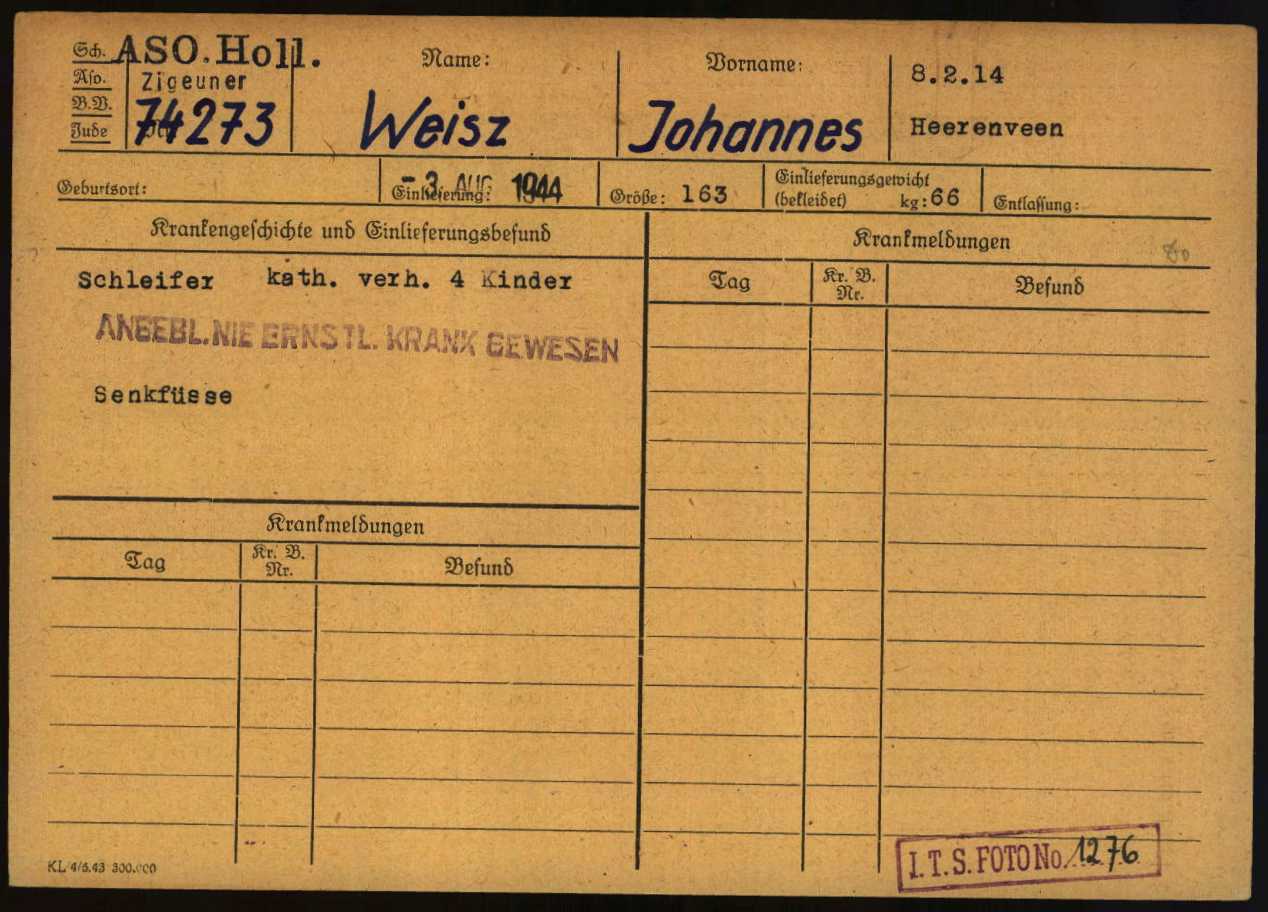 Sch. ASO.Holl.
Aso. Zigeuner
B.V.
Jude 74273
Name:
Weisz
Vorname:
Johannes
8.2.14
Heerenveen
Geburtsort:
Einlieferung: - 3. AUG 1944
Größe: 163
Einlieferungsgewicht
(bekleidet) kg: 66
Entlassung:
Krankengeschichte und Einlieferungsbefund
Schleifer kath. verh. 4 Kinder
ANGEBL. NIE ERNSTL. KRANK GEWESEN
Senkfüsse
Krankmeldungen
Tag Kr. B. Nr. Befund
Krankmeldungen
Tag Kr. B. Nr. Befund
KL/4/5.43 300.000
I.T.S. FOTO No. 1276